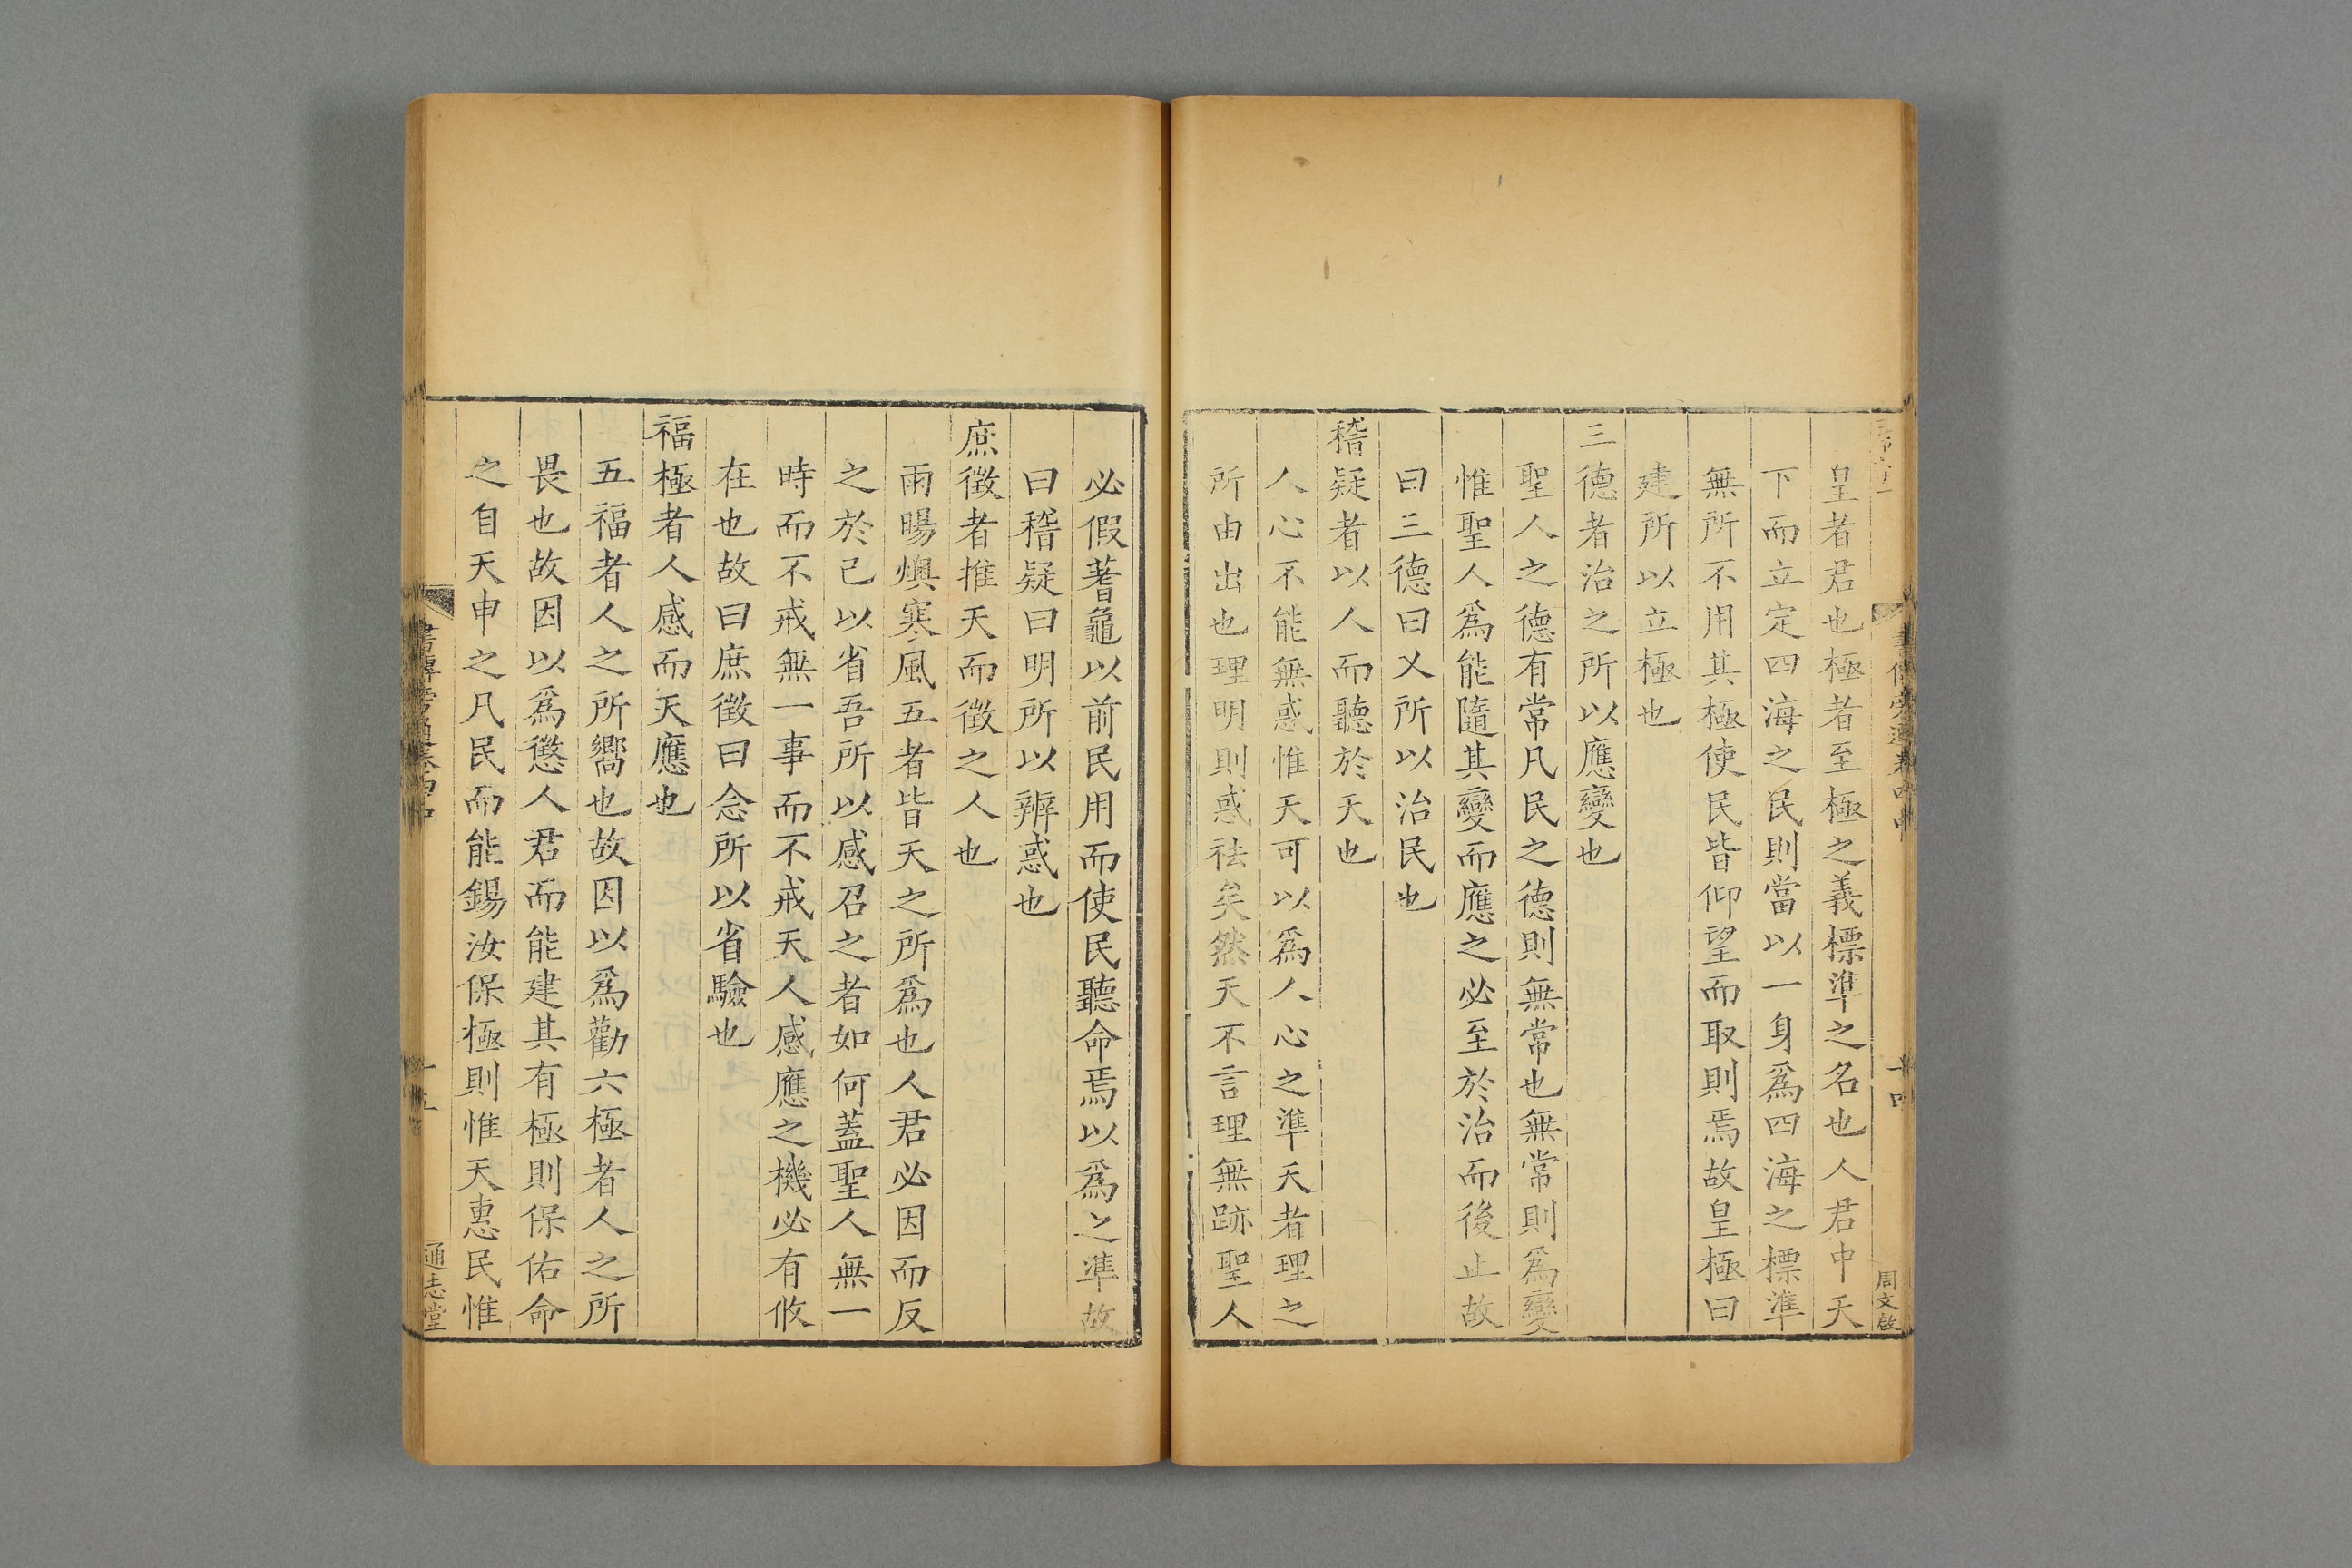 皇者君也極者至極之義標準之名也人君中天
下而立定四海之民則當以一身爲四海之標準
無所不用其極使民皆仰望而取則焉故皇極曰
建所以立極也
三德者治之所以應變也
聖人之德有常凡民之德則無常也無常則爲變
惟聖人爲能隨其變而應之必至於治而後止故
曰三德曰乂所以治民也
稽疑者以人而聽於天也
人心不能無惑惟天可以爲人心之準天者理之
所由出也理明則惑祛矣然天不言理無跡聖人
周文啟
必假蓍龜以前民用而使民聽命焉以爲之準故
曰稽疑曰明所以辨惑也
庶徵者推天而徵之人也
雨暘燠寒風五者皆天之所爲也人君必因而反
之於己以省吾所以感召之者如何蓋聖人無一
時而不戒無一事而不戒天人感應之機必有攸
在也故曰庶徵曰念所以省驗也
福極者人感而天應也
五福者人之所嚮也故因以爲勸六極者人之所
畏也故因以爲懲人君而能建其有極則保佑命
之自天申之凡民而能錫汝保極則惟天惠民惟
通志堂